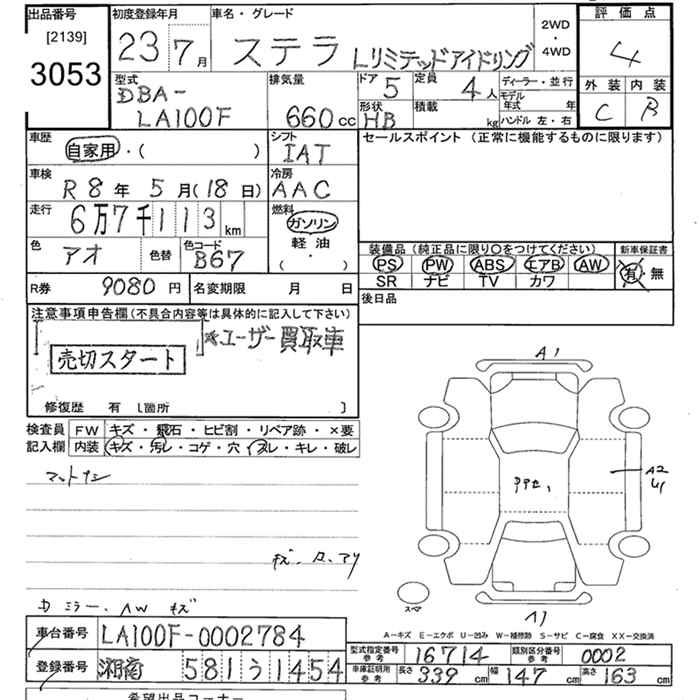 出品番号 初度登録年月 車名・グレード 2WD・4WD 評価点
[2139]
3053 23年7月 ステラ Lリミテッドアイドリング 4
型式 排気量 ドア 定員 ディーラー・並行 外装 内装
DBA- 5 4人 モデル年式 年
LA100F 660cc 形状 HB 積載 kg ハンドル 左・右 C B
車歴 シフト セールスポイント（正常に機能するものに限ります）
自家用・( ) IAT
車検 冷房
R8年5月(18日) AAC
走行 燃料
6万7千113km ガソリン
軽油
( ・ )
色 アオ 色替 色コード B67
装備品（純正品に限り○をつけてください） 新車保証書
PS PW ABS エアB AW 有・無
SR ナビ TV カワ
R券 9080円 名変期限 月 日 後日品
注意事項申告欄(不具合内容等は具体的に記入して下さい)
※ユーザー買取車
売切スタート
修復歴 有 [箇所 ]
検査員記入欄 FW キズ・飛石・ヒビ割・リペア跡・×要
内装 キズ・汚レ・コゲ・穴・スレ・キレ・破レ
マットナシ
A1
A2
A1
スペア
D ミラー、AW キズ
A-キズ E-エクボ U-凹み W-補修跡 S-サビ C-腐食 XX-交換済
車台番号 LA100F-0002784
型式指定番号参考 16714 類別区分番号参考 0002
登録番号 湘南 581 う 1454
車庫証明用参考 長さ 339cm 幅 147cm 高さ 163cm
希望出品コーナー